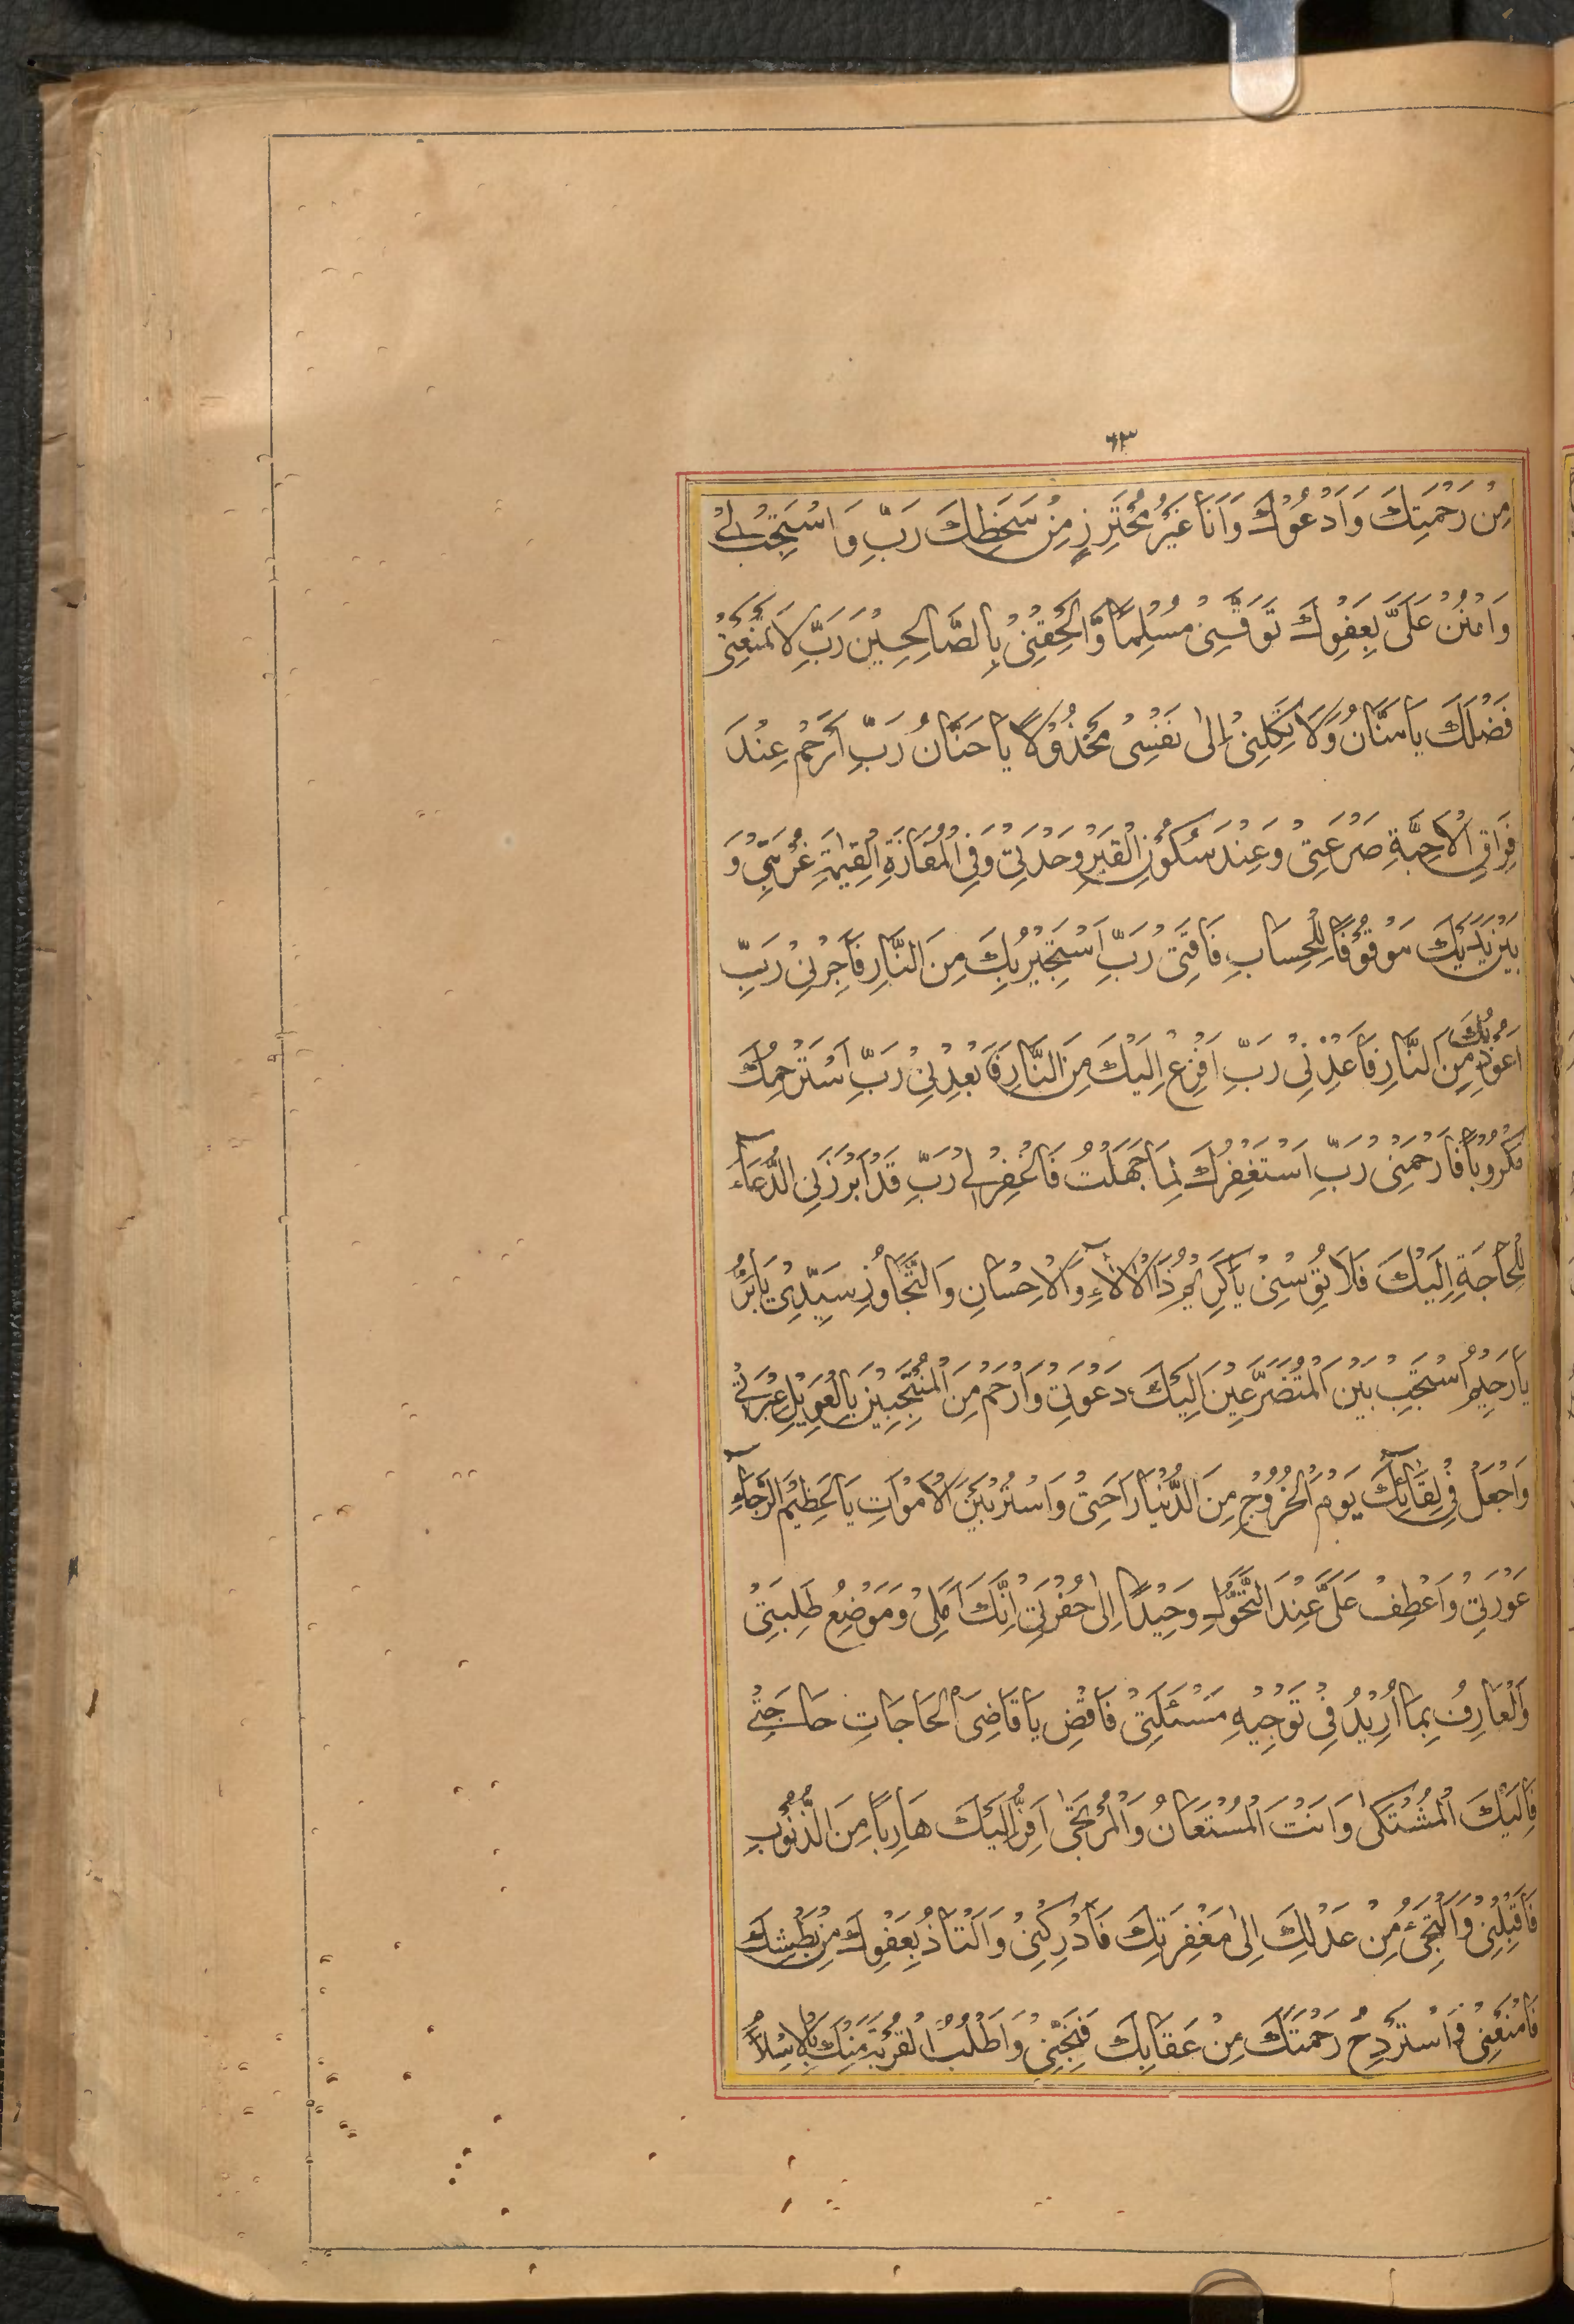 ٦٣
مِنْ رَحْمَتِكَ وَاَدْعُوْكَ وَاَنَا غَيْرُ مُحْتَرِزٍ مِنْ سَخَطِكَ رَبِّ وَاسْتَجِبْ لِيْ
وَامْنُنْ عَلَىَّ بِعَفْوِكَ تَوَفَّنِىْ مُسْلِمًا وَّاَلْحِقْنِىْ بِالصَّالِحِيْنَ رَبِّ لَا تَمْنَعْنِىْ
فَضْلَكَ يَا مَنَّانُ وَلَا تَكِلْنِىْ اِلٰى نَفْسِىْ مَخْذُوْلًا يَا حَنَّانُ رَبِّ ارْحَمْ عِنْدَ
فِرَاقِ الْاَحِبَّةِ صَرْعَتِىْ وَعِنْدَ سُكُوْنِ الْقَبْرِ وَحْدَتِىْ وَفِى الْمَفَازَةِ الْقِيٰمَةِ غُرْبَتِىْ وَ
بَيْنَ يَدَيْكَ مَوْقُوْفًا لِلْحِسَابِ فَاقَتِىْ رَبِّ اَسْتَجِيْرُ بِكَ مِنَ النَّارِ فَاَجِرْنِىْ رَبِّ
اَعُوْذُ بِكَ مِنَ النَّارِ فَاَعِذْنِىْ رَبِّ اَفْزَعُ اِلَيْكَ مِنَ النَّارِ فَابْعِدْنِىْ رَبِّ اَسْتَرْحِمُكَ
مَكْرُوْبًا فَارْحَمْنِىْ رَبِّ اَسْتَغْفِرُكَ لِمَا جَهِلْتُ فَاغْفِرْ لِىْ رَبِّ قَدْ اَبْرَزَنِى الدُّعَآءُ
لِلْحَاجَةِ اِلَيْكَ فَلَا تُؤْسِنِىْ يَا كَرِيْمُ ذَا الْاٰلَآءِ وَالْاِحْسَانِ وَالتَّجَاوُزِ سَيِّدِىْ يَا بَرُّ
يَا رَحِيْمُ اسْتَجِبْ بَيْنَ الْمُتَضَرِّعِيْنَ اِلَيْكَ دَعْوَتِىْ وَارْحَمْ مِنَ الْمُنْتَحِبِيْنَ بِالْعَوِيْلِ عَبْرَتِىْ
وَاجْعَلْ فِىْ لِقَآئِكَ يَوْمَ الْخُرُوْجِ مِنَ الدُّنْيَا رَاحَتِىْ وَاسْتُرْ بَيْنَ الْاَمْوَاتِ يَا عَظِيْمَ الرَّجَآءِ
عَوْرَتِىْ وَاعْطِفْ عَلَىَّ عِنْدَ التَّحَوُّلِ وَحِيْدًا اِلٰى حُفْرَتِىْ اِنَّكَ اَمَلِىْ وَمَوْضِعُ طَلِبَتِىْ
وَالْعَارِفُ بِمَا اُرِيْدُ فِىْ تَوْجِيْهِ مَسْئَلَتِىْ فَاقْضِ يَا قَاضِىَ الْحَاجَاتِ حَاجَتِىْ
فَاِلَيْكَ الْمُشْتَكٰى وَاَنْتَ الْمُسْتَعَانُ وَالْمُرْتَجٰى اَفِرُّ اِلَيْكَ هَارِبًا مِنَ الذُّنُوْبِ
فَاقْبَلْنِىْ وَاَلْتَجِىْءُ مِنْ عَدْلِكَ اِلٰى مَغْفِرَتِكَ فَاَدْرِكْنِىْ وَاَلْتَاذُ بِعَفْوِكَ مِنْ بَطْشِكَ
فَامْنَعْنِىْ وَاَسْتَرْوِحُ رَحْمَتَكَ مِنْ عِقَابِكَ فَنَجِّنِىْ وَاَطْلُبُ الْقُرْبَةَ مِنْكَ بِالْاِسْلَامِ